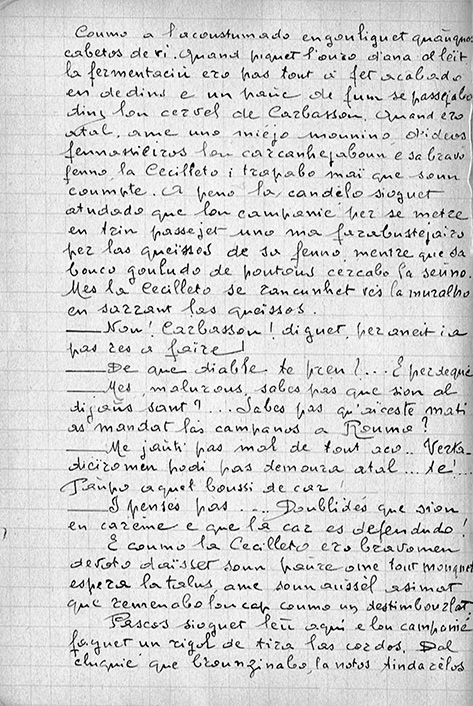 Coumo a l'acoustumado engouliguet quauquos
cabetos de vi. Quand piquet l'ouro d'ana al leit
la fermentaciu ero pas tout a fet acabado
en dedins e un pauc de fum se passejabo
dins lou cervel de Carbassou. Quand ero
atal, ame uno miejo mounino d'ideos
fennassieiros lou carcanhejaboun e sa bravo
fenno, la Cecilleto i trapabo mai que soun
coumpte. A peno la candèlo sioguet
atudado que lou campanié per se metre
en trin passejet uno ma farabustejairo
per las queissos de sa fenno, mentre que sa
bouco gouludo de poutous cercabo la seuno.
Mes la Cecilleto se rancunhet vès la muralho
en sarrant las queissos.
— Nou! Carbassou! diguet, per aneit i a
pas res a faire!
— De que diable te pren?... E perdequé
— Mes, malurous, sabes pas que sion al
dijaus sant?... Sabes pas qu'aiceste mati
as mandat las campanos a Roumo?
— Me fauti pas mal de tout aco.. Verta-
dieiromen podi pas demoura atal... te!...
Paupo aquet boussi de car!
— I penses pas.... Doublidés que sion
en carème e que la car es defendudo.
E coumo la Cecilleto ero bravomen
devoto daisset soun paure ome tout mouquet
espera la talus, ame soun aussèl asimat
que remenabo lou cap coumo un destimbourlat
Pascos sioguet lèu aqui e lou campanié
faguet un rigol de tira las cordos. Dal
cluquié que brounzinabo, la notos tindarèlos